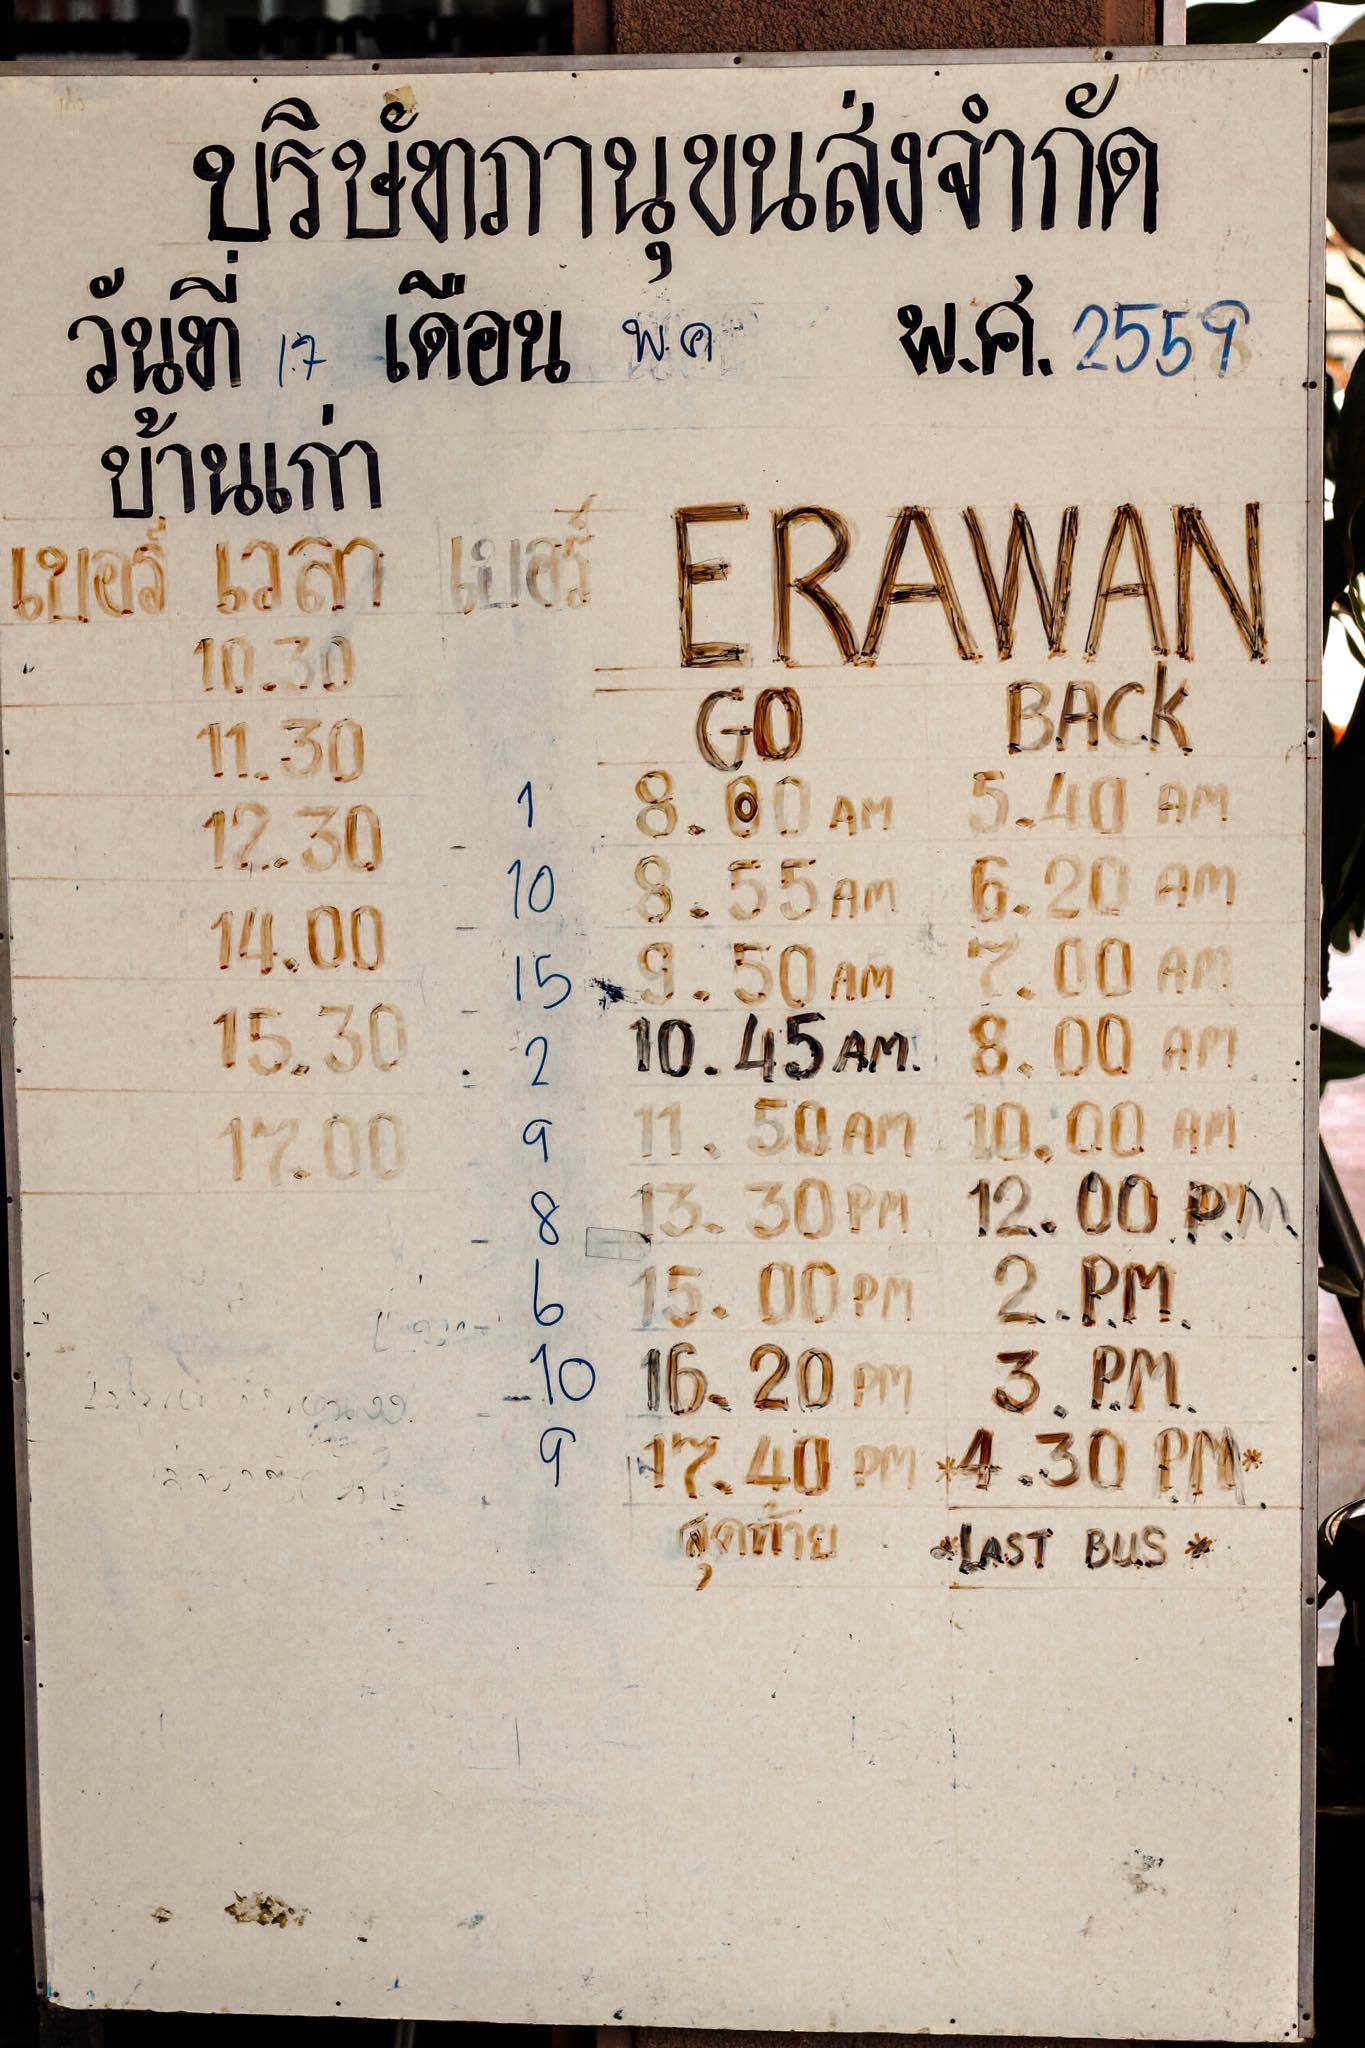 บริษัทภานุขนส่งจำกัด
วันที่ 17 เดือน พ.ค พ.ศ. 2559
บ้านเก่า
เบอร์ เวลา เบอร์ ERAWAN
10.30 GO BACK
11.30
1 8.00 AM 5.40 AM
12.30
10 8.55 AM 6.20 AM
14.00
15 9.50 AM 7.00 AM
15.30
2 10.45 AM. 8.00 AM
17.00
9 11.50 AM 10.00 AM
8 13.30 PM 12.00 P.M
6 15.00 PM 2.P.M.
10 16.20 PM 3.P.M.
9 17.40 PM *4.30 P.M*
สุดท้าย *LAST BUS*